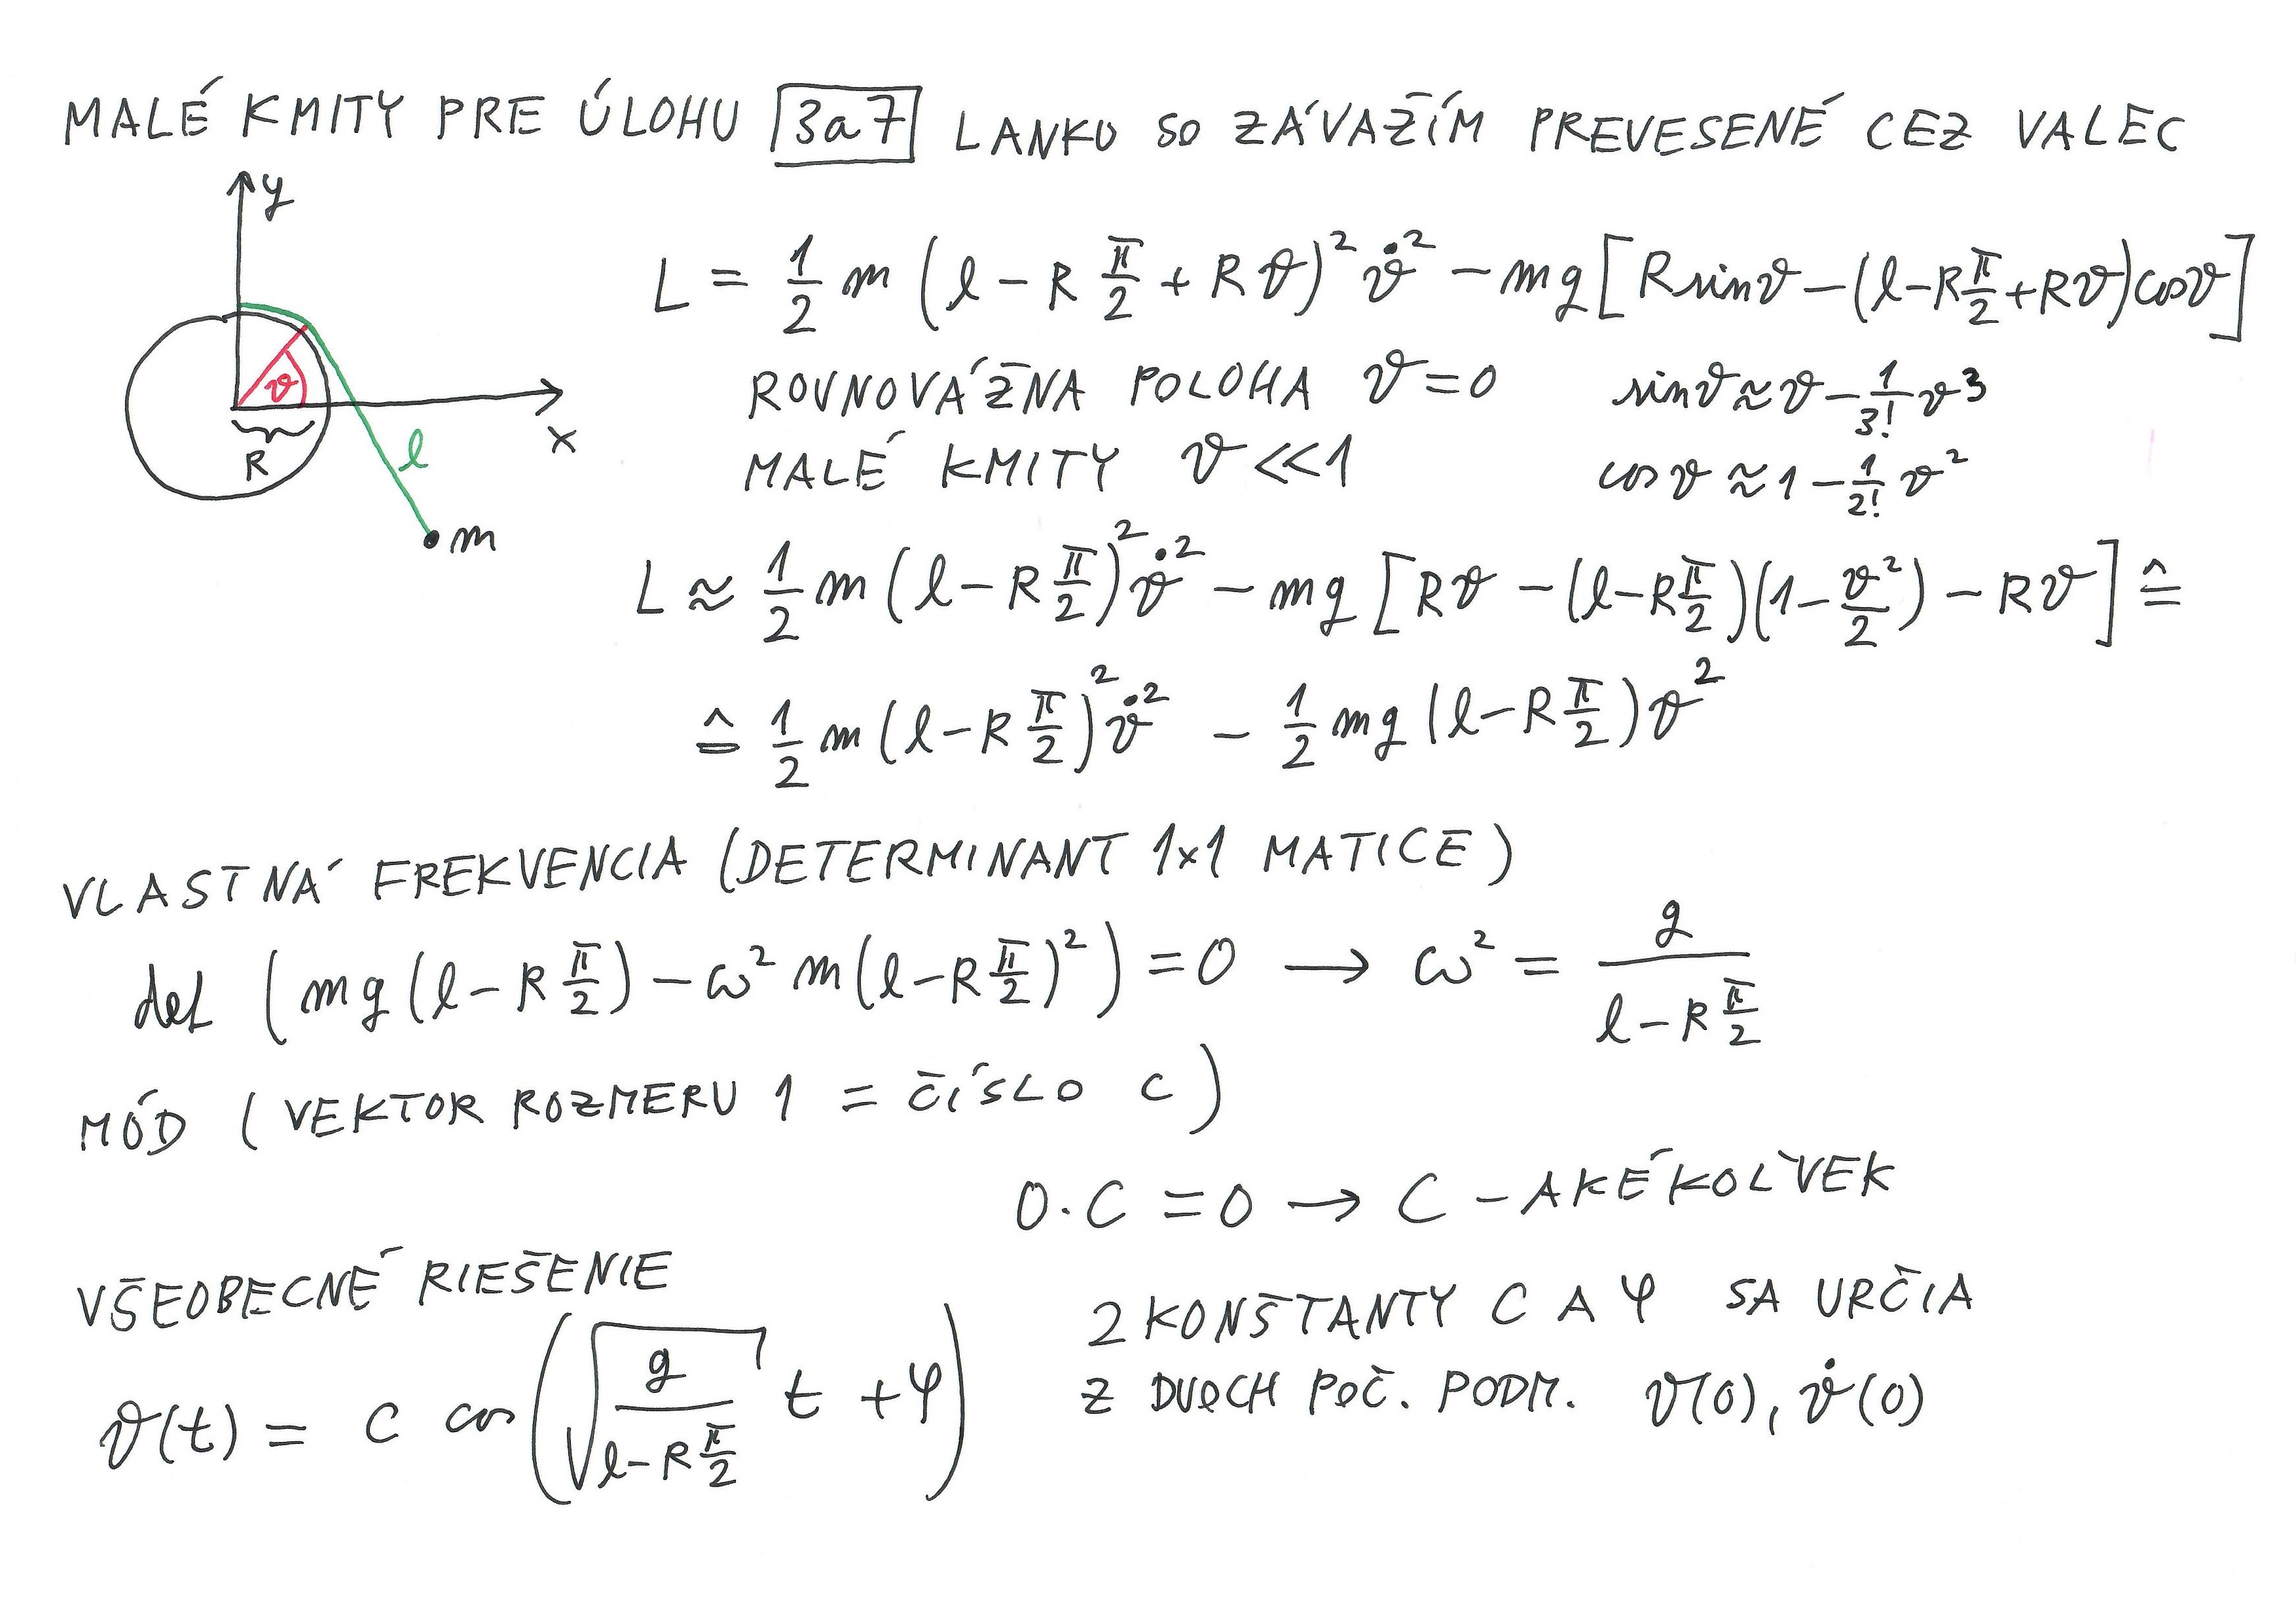 MALÉ KMITY PRE ÚLOHU 3a7 LANKO SO ZÁVAŽÍM PREVESENÉ CEZ VALEC
y
L = 1/2 m (l − R π/2 + Rϑ)² ϑ̇² − mg[R sinϑ − (l − R π/2 + Rϑ) cosϑ]
ROVNOVÁŽNA POLOHA ϑ = 0 sinϑ ≈ ϑ − 1/3! ϑ³
ϑ
x
R
l
MALÉ KMITY ϑ ≪ 1 cosϑ ≈ 1 − 1/2! ϑ²
m
L ≈ 1/2 m (l − R π/2)² ϑ̇² − mg [Rϑ − (l − R π/2)(1 − ϑ²/2) − Rϑ] ≙
≙ 1/2 m (l − R π/2)² ϑ̇² − 1/2 mg (l − R π/2) ϑ²
VLASTNÁ FREKVENCIA (DETERMINANT 1×1 MATICE)
det (mg (l − R π/2) − ω² m (l − R π/2)²) = 0 → ω² = g/(l − R π/2)
MÓD (VEKTOR ROZMERU 1 = ČÍSLO C)
0·C = 0 → C − AKÉKOĽVEK
VŠEOBECNÉ RIEŠENIE
2 KONŠTANTY C A φ SA URČIA
Z DVOCH POČ. PODM. ϑ(0), ϑ̇(0)
ϑ(t) = C cos(√(g/(l − R π/2)) t + φ)